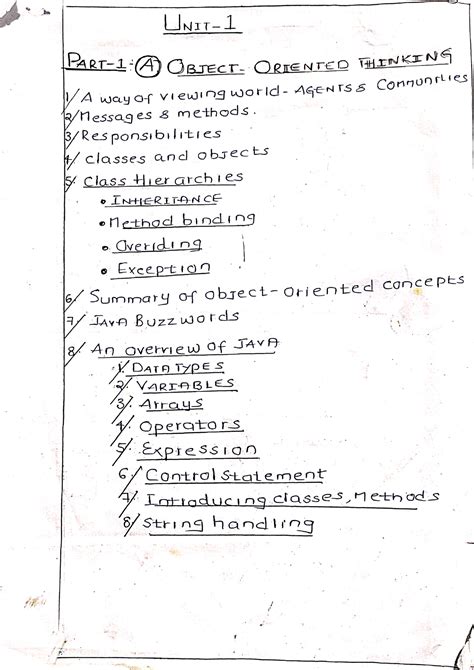 UNIT-1
PART-1: A OBJECT-ORIENTED THINKING
1/ A way of viewing world - AGENTS & Communities
2/ Messages & methods.
3/ Responsibilities
4/ classes and objects
5/ Class Hierarchies
• INHERITANCE
• Method binding
• Overiding
• Exception
6/ Summary of object-oriented concepts
7/ JAVA Buzzwords
8/ An overview of JAVA
1. DATATYPES
2/ VARIABLES
3/ Arrays
4/ Operators
5/ Expression
6/ Control Statement
7/ Introducing classes, Methods
8/ String handling